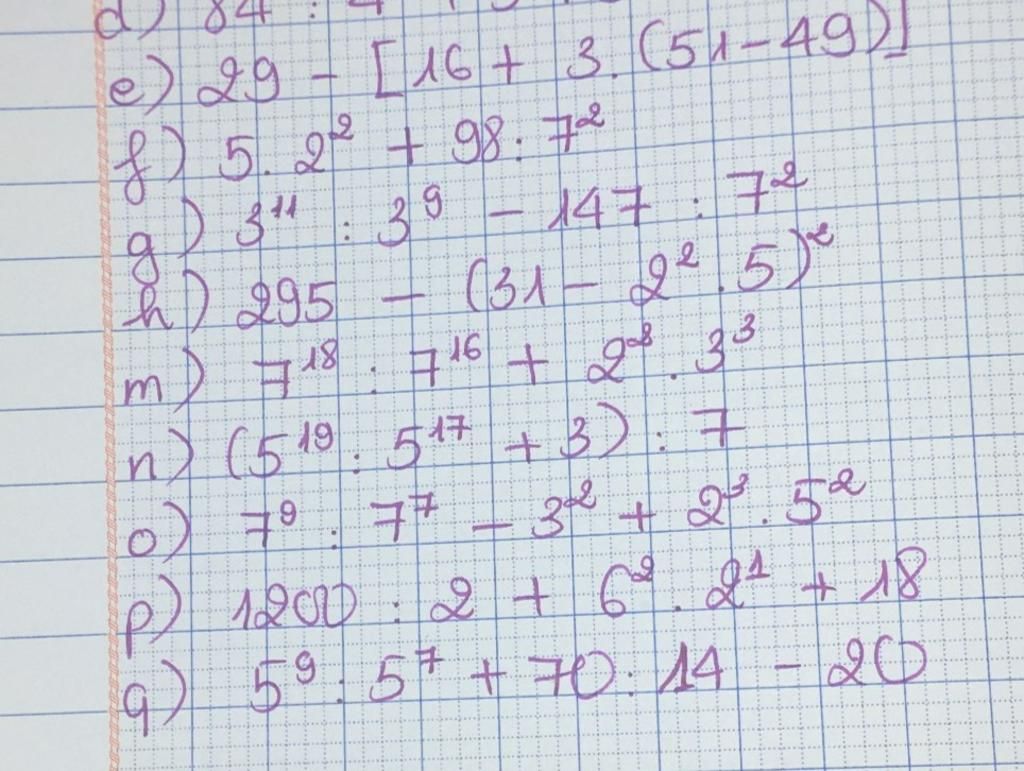 d) 84 : 4
e) 29 - [16 + 3.(51-49)]
f) 5. 2² + 98 : 7²
g) 3¹¹ : 3⁹ - 147 : 7²
h) 295 - (31 - 2².5)²
m) 7¹⁸ : 7¹⁶ + 2² . 3³
n) (5¹⁹ : 5¹⁷ + 3) : 7
o) 7⁹ : 7⁷ - 3² + 2³ . 5²
p) 1200 : 2 + 6² . 2¹ + 18
q) 5⁹ : 5⁷ + 70 : 14 - 20